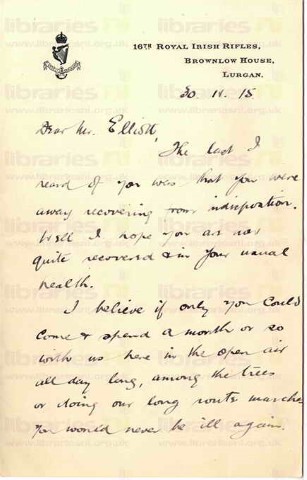 16TH ROYAL IRISH RIFLES,
BROWNLOW HOUSE,
LURGAN.
30.11.15.
Dear Mr. Elliott,
The last I
heard of you was that you were
away recovering from indisposition.
Well I hope you are now
quite recovered & in your usual
health.
I believe if only you could
come & spend a month or so
with us here in the open air
all day long, among the trees
or doing our long route marches
you would never be ill again.